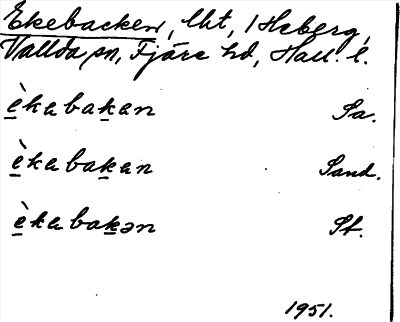 Ekebacken, lht, Heberg,
Vallda sn, Fjäre hd, Hall. l.
èkabakan Sa.
èkabakan Sand.
èkabakən St.
1951.